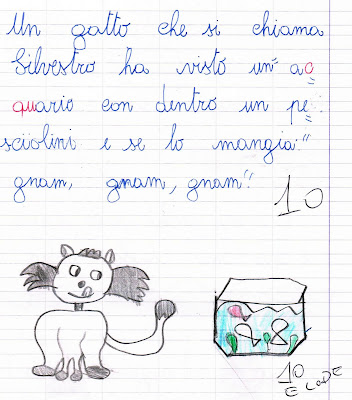 Un gatto che si chiama
Silvestro ha visto un' ac
quario con dentro un pe
sciolini e se lo mangia:"
gnam, gnam, gnam".
10
10
E LODE